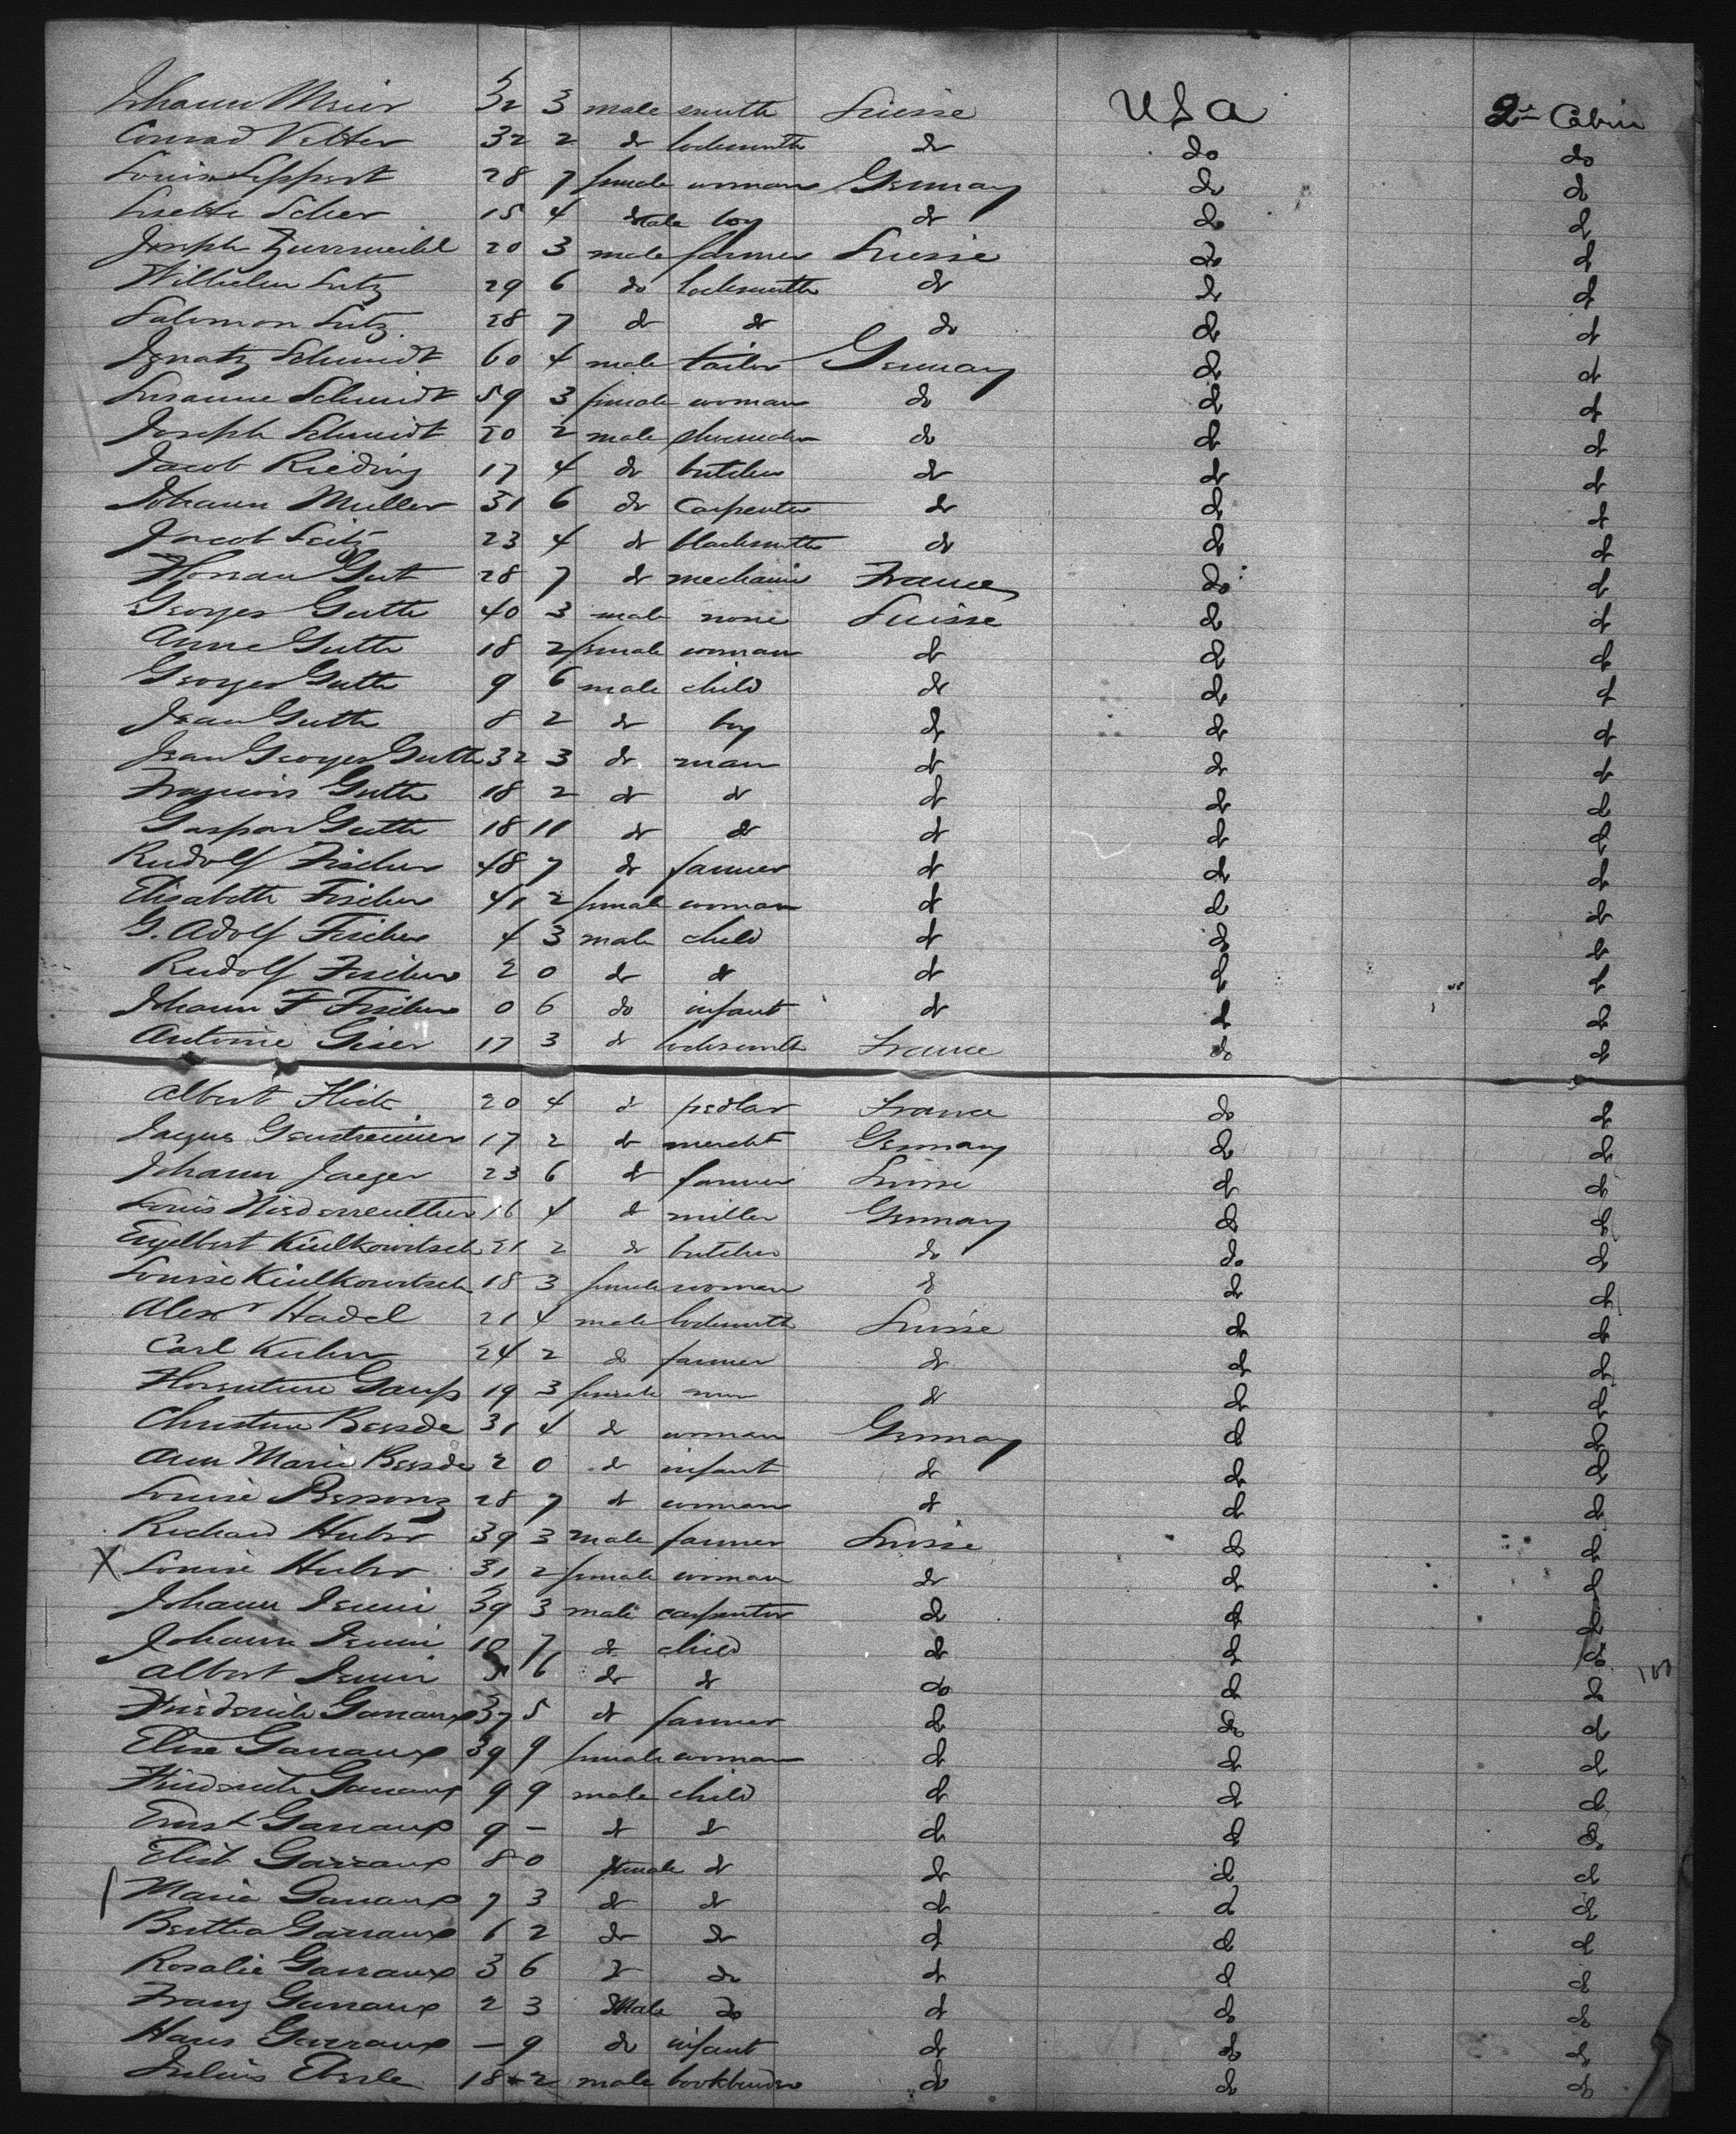 Johann Meier 32 3 male smith Suisse U S A 2d Cabin
Conrad Vetter 32 2 do locksmith do do do
Louise Leppert 28 7 female woman Germany do do
Lisette Scher 15 4 male boy do do do
Joseph 20 3 male farmer Suisse do do
Wilhelm Lutz 29 6 do locksmith do do do
Salomon Lutz 28 7 do do do do do
Ignatz Schmidt 60 4 male tailor Germany do do
Susanne Schmidt 59 3 female woman do do do
Joseph Schmidt 20 2 male shoemaker do do do
Jacob Rieding 17 4 do butcher do do do
Johann Muller 31 6 do carpenter do do do
Jacob Seitz 23 4 do blacksmith do do do
Florian Gut 28 7 do mechanic France do do
Georges Guth 40 3 male none Suisse do do
Anne Guth 18 2 female woman do do do
Georges Guth 9 6 male child do do do
Jean Guth 8 2 do boy do do do
Jean Georges Guth 32 3 do man do do do
François Guth 18 2 do do do do do
Gaspar Guth 18 11 do do do do do
Rudolf Fischer 48 7 do farmer do do do
Elisabeth Fischer 41 2 female woman do do do
G. Adolf Fischer 4 3 male child do do do
Rudolf Fischer 2 0 do do do do do
Johann F Fischer 0 6 do infant do do do
Antoine Giser 17 3 do locksmith France do do
Albert Flick 20 4 do pedlar France do do
Jaques 17 2 do mercht Germany do do
Johann Jaeger 23 6 do farmer Suisse do do
Louis 16 4 do miller Germany do do
Engelbert Kiulkowitsch 21 2 do butcher do do do
Louise Kiulkowitsch 18 3 female woman do do do
Alexr Hadel 21 4 male locksmith Suisse do do
Carl Kuhn 24 2 do farmer do do do
Gaufs 19 3 female do do do
Christine Bersde 31 4 do woman Germany do do
Ann Marie Bersde 2 0 do infant do do do
Louise 28 7 do woman do do do
Richard Huber 39 3 male farmer Suisse do do
X Louise Huber 31 2 female woman do do do
Johann Isuni 39 3 male carpenter do do do
Johann Isuni 10 7 do child do do do
Albert Isuni 5 6 do do do do do 100
Friederich Garraux 37 5 do farmer do do do
Elise Garraux 39 9 female woman do do do
Friederich Garraux 9 9 male child do do do
Ernst Garraux 9 – do do do do do
Elist Garraux 8 0 female do do do do
Maria Garraux 7 3 do do do do do
Bertha Garraux 6 2 do do do do do
Rosalie Garraux 3 6 do do do do do
Franz Garraux 2 3 male do do do do
Hans Garraux – 9 do infant do do do
Julius Eberle 18 2 male bookbinder do do do